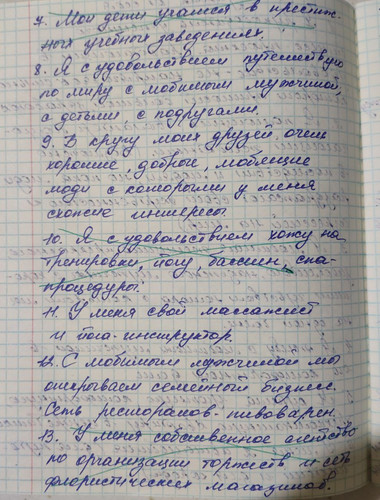 7. Мои дети учатся в престиж-
ных учебных заведениях.
8. Я с удовольствием путешествую
по миру с любимым мужчиной,
с детьми, с подругами.
9. В кругу моих друзей очень
хорошие, добрые, любящие
люди с которыми у меня
схожие интересы
10. Я с удовольствием хожу на
тренировки, йогу, бассейн, спа-
процедуры.
11. У меня свой массажист
и йога-инструктор.
12. С любимым мужчиной мы
открываем семейный бизнес.
Сеть ресторанов-пивоварен.
13. У меня собственное агентство
по организации торжеств и сеть
флористических магазинов.